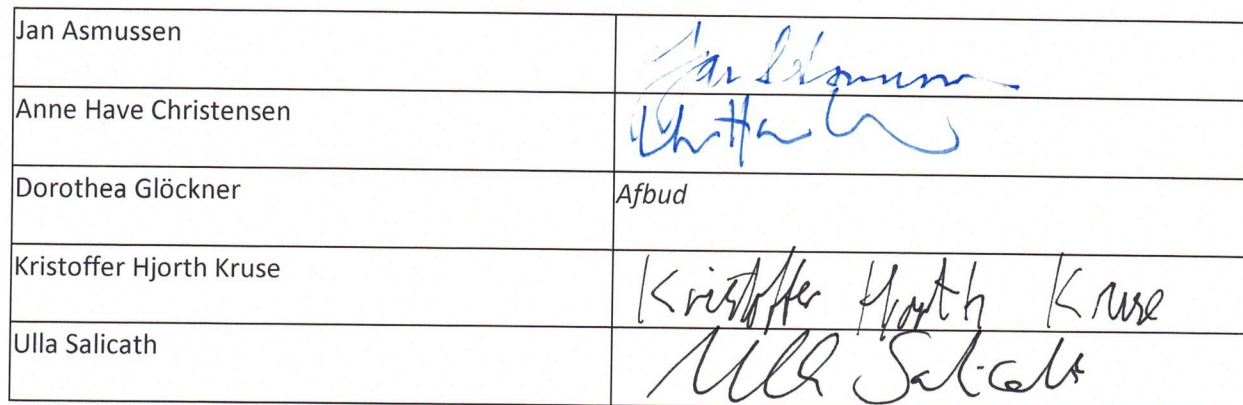 Jan Asmussen
Anne Have Christensen
Dorothea Glöckner Afbud
Kristoffer Hjorth Kruse Kristoffer Hjorth Kruse
Ulla Salicath Ulla Salicath